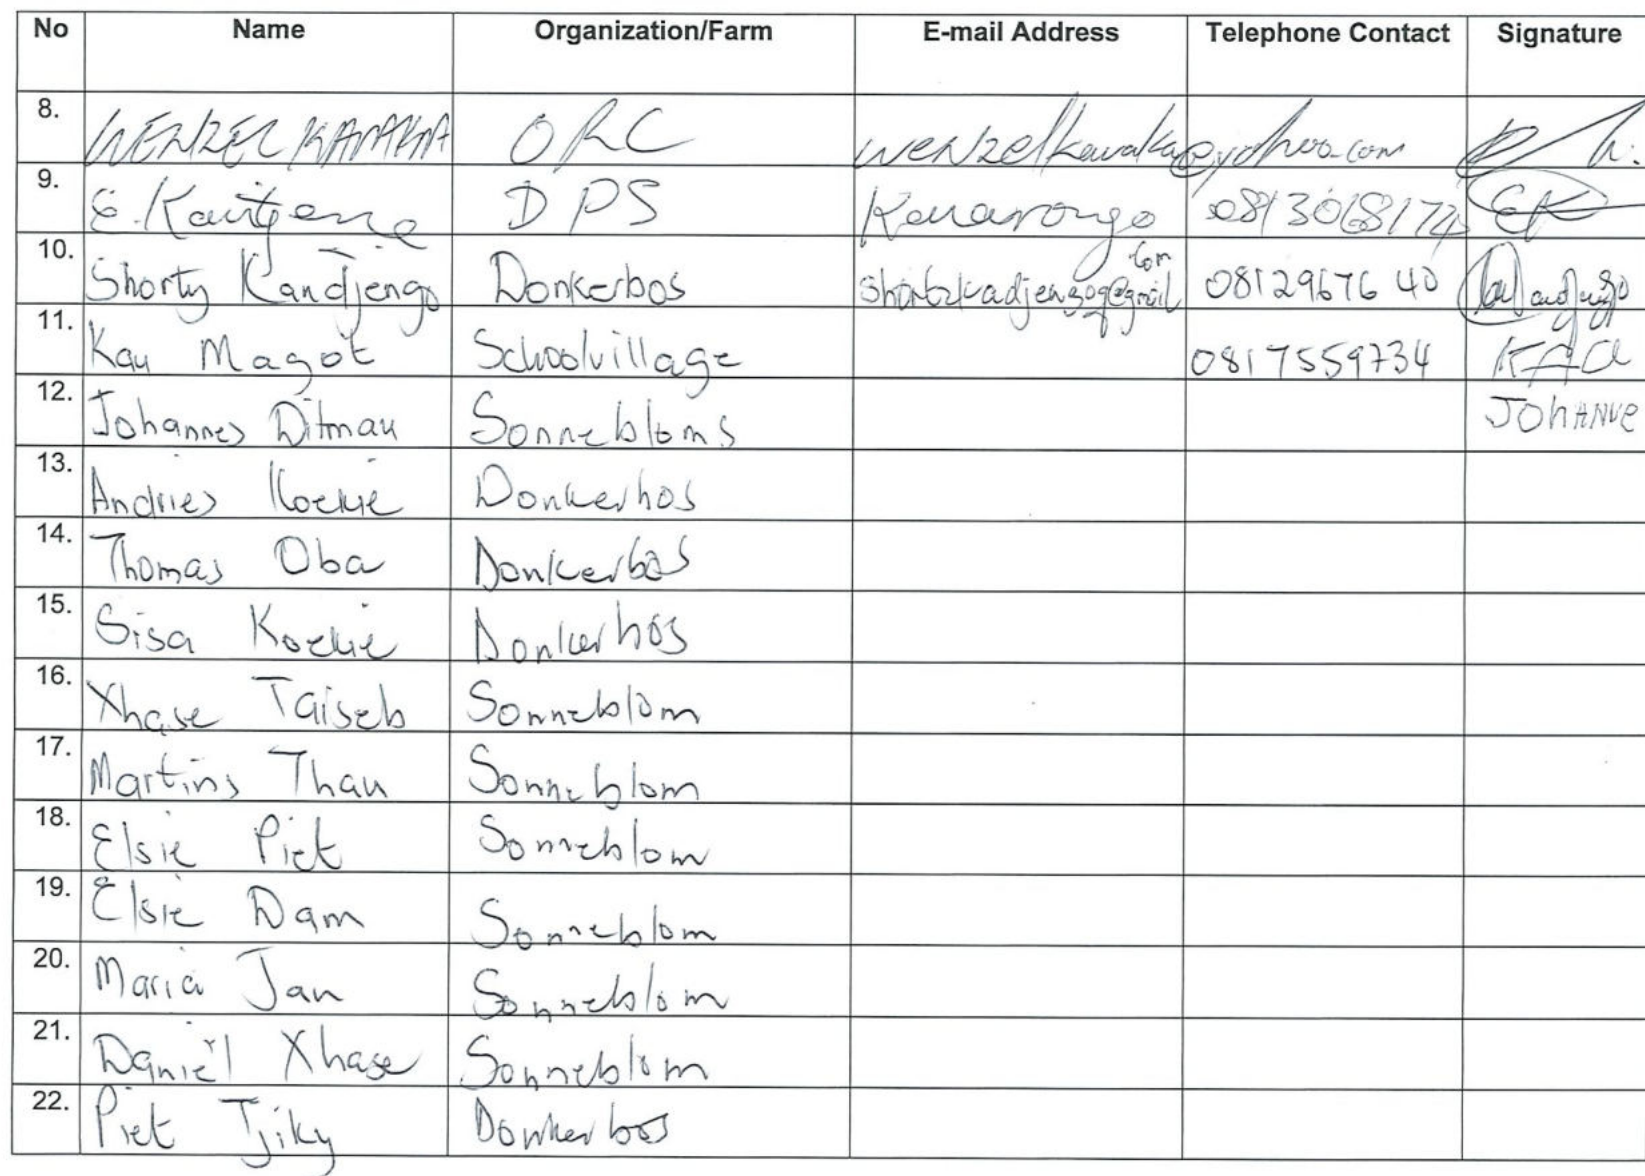 No Name Organization/Farm E-mail Address Telephone Contact Signature
8. WENZEL KAVAKA ORC wenzelkavaka@yahoo.com
9. E. DPS 0813068174 EK
10. Shorty Kandjengo Donkerbos 0812967640
11. Kau Magot Schoolvillage 0817559734 KAU
12. Johannes Ditmau Sonnebloms JOhANNE
13. Andries Koekie Donkerbos
14. Thomas Oba Donkerbos
15. Sisa Koekie Donkerbos
16. Xhase Taiseb Sonneblom
17. Martins Thau Sonneblom
18. Elsie Piet Sonneblom
19. Elsie Dam Sonneblom
20. Maria Jan Sonneblom
21. Daniël Xhase Sonneblom
22. Piet Tjiky Donkerbos